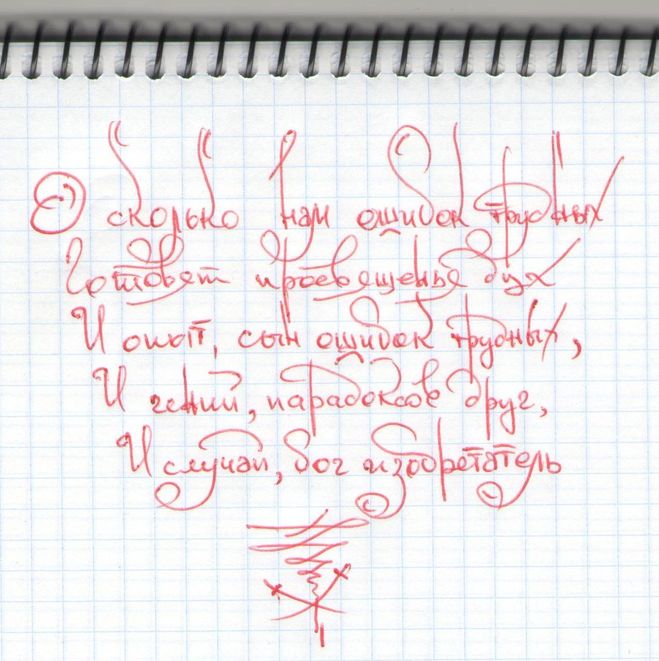 О сколько нам ошибок трудных
Готовят просвещенья дух
И опыт, сын ошибок трудных,
И гений, парадоксов друг,
И случай, бог изобретатель